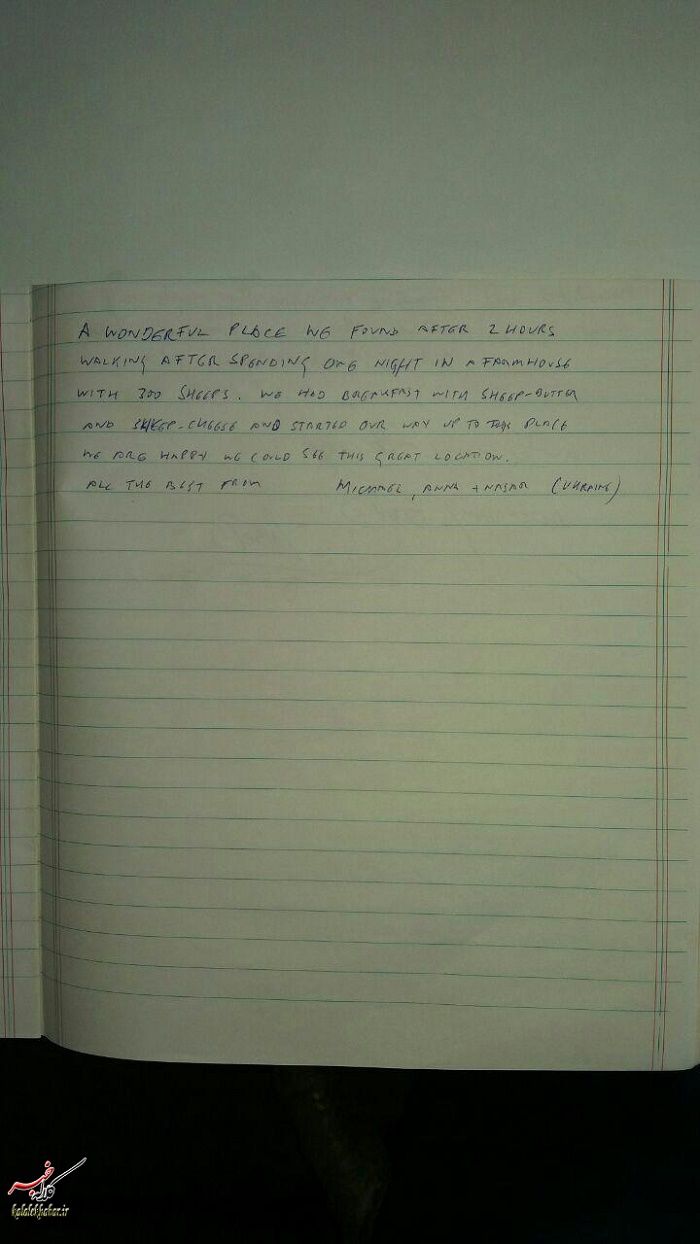 A WONDERFUL PLACE WE FOUND AFTER 2 HOURS
WALKING AFTER SPENDING ONE NIGHT IN A FARMHOUSE
WITH 300 SHEEPS. WE HAD BREAKFAST WITH SHEEP-BUTTER
AND SHEEP-CHEESE AND STARTED OUR WAY UP TO THIS PLACE
WE ARE HAPPY WE COULD SEE THIS GREAT LOCATION.
ALL THE BEST FROM MICHAEL, ANNA + NASAR (UKRAINE)
کلاله خبر
kalalekhabar.ir